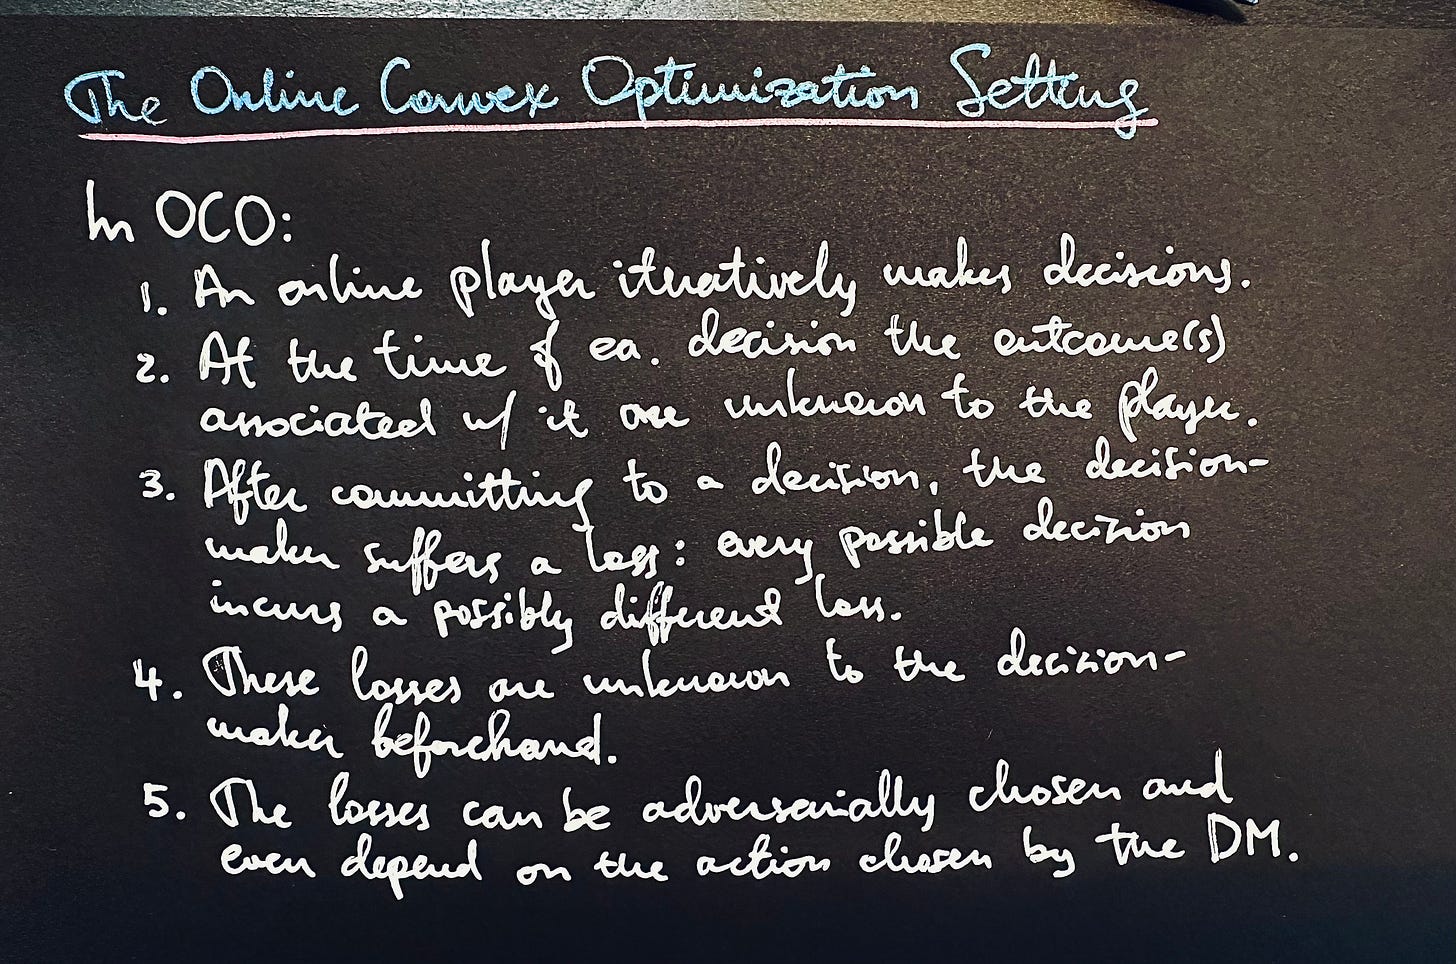 The Online Convex Optimization Setting
In OCO:
1. An online player iteratively makes decisions.
2. At the time of ea. decision the outcome(s)
associated w/ it are unknown to the player.
3. After committing to a decision, the decision-
maker suffers a loss: every possible decision
incurs a possibly different loss.
4. These losses are unknown to the decision-
maker beforehand.
5. The losses can be adversarially chosen and
even depend on the action chosen by the DM.